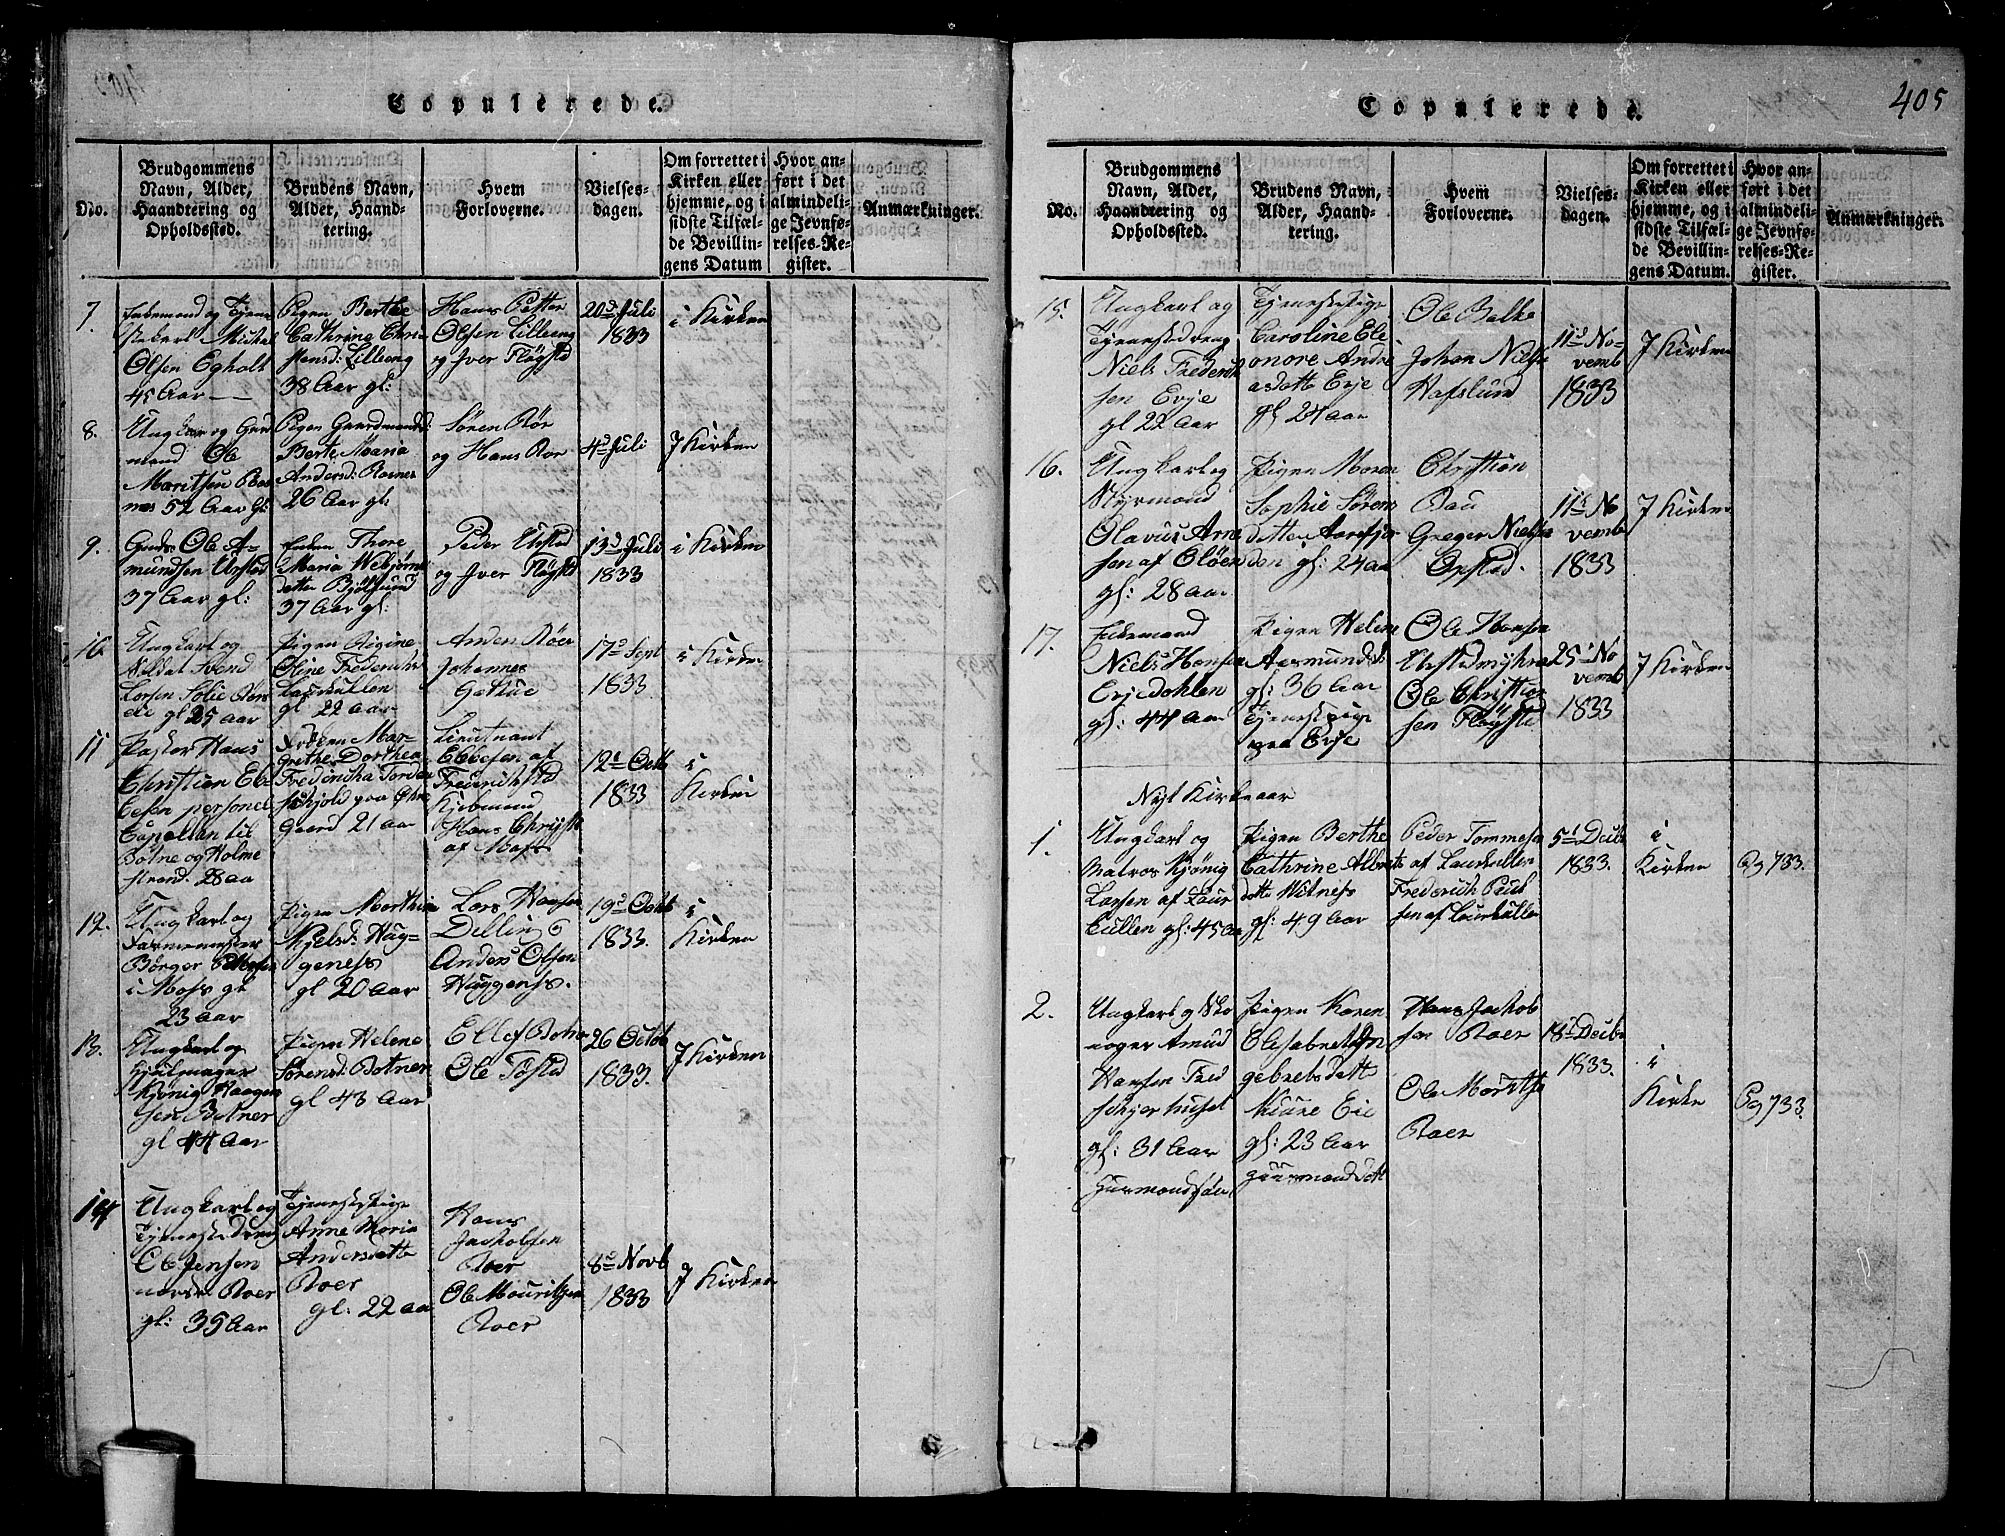 Copulerede.
No.
Brudgommens
Navn, Alder,
Haandtering og
Opholdssted.
Brudens Navn,
Alder, Haand-
tering.
Hvem
Forloverne.
Vielses-
dagen.
Om forrettet i
Kirken eller
hjemme, og i
sidste Tilfæl-
de Bevillin-
gens Datum
Hvor an-
ført i det
almindeli-
ge Jevnfø-
relses-Re-
gister.
Anmærkninger.
7.
Michel
Olsen Egholt
45 Aar
Pigen Berthe
Cathrine Chri
stensd: Lilleeng
38 Aar gl:
Hans Petter
Olsen Lilleeng
og Iver Fløgsted
20d Juli
1833
i Kirken
8.
Ungkar og Gaar
mand Ole
52 Aar gl:
Pigen Gaardmandsd
Berte Maria
Andersd:
26 Aar gl.
Sören Röer
og Hans Roer
4d Juli
J Kirken
9.
Ole A-
mundsen Ursted
37 Aar gl:
Enken Thore
Maria
37 Aar gl:
Peder Ursted
og Iver Fløgsted
13d Juli
1833
i Kirken
10
Ungkarl og
Soldat Svend
Larsen
gl 25 Aar
Pigen Regine
Oline Frederichs
Laurkullen
gl 22 Aar
Anders Röer
Johannes
17d Sept
1833
i Kirken
11
Hans
Christian Eb
besen personel
Capellan til
Botne og Holme
strand. 28 aa
Frøken Mar-
grethe Dorthea
Fredericka Torden
skjold paa
Gaard 21 aa
Lieutnant
Ebbesen af
Frederichsted
Kjøbmand
Hans Chryst
af Moss
12t Octb
1833
i
Kirken
12.
Ungkarl og
Farvemester
Börger Pettersen
i Moss gl
23 Aar
Pigen Marthea
Kjelsd: Hug-
genes
gl 20 Aar
Lars Hansen
Dilling
Anders Olsen
Huggenes.
19d Octb
1833.
i
Kirken
13.
Ungkarl og
Hjulmager
Kjönig Haagen
sen Botner
gl 44 Aar
Pigen Helene
Sörensd: Botner
gl 43 Aar
Ellef Botner
Ole Tösted
26 Octob
1833.
J Kirken
14
Ungkarl og
Tjenestedreng
Ole Jensen
Roer
gl: 35 Aar
Tjenestepige
Anne Maria
Andersdatter
Roer
gl: 22 aa
Hans
Jachobsen
Roer
Ole Mouritzen
Roer
8d Novb
1833
J Kirken
Copulerede.
405
No.
Brudgommens
Navn, Alder,
Haandtering og
Opholdssted.
Brudens Navn,
Alder, Haand-
tering.
Hvem
Forloverne.
Vielses-
dagen.
Om forrettet i
Kirken eller
hjemme, og i
sidste Tilfæl-
de Bevillin-
gens Datum.
Hvor an-
ført i det
almindeli-
ge Jevnfø-
relses-Re-
gister.
Anmærkninger.
15.
Ungkarl og
Tjenestedreng
Niels Frederich
sen Evje
gl 22 Aar
Tjenestepige
Caroline Ele
onore Andre
asdatte Evje
gl 24 aar
Ole Balke
Johan Nielse
Hafslund
11d No-
vemb
1833
J Kirken
16.
Ungkarl og
Styrmand
Olavius Arne
sen af
gl: 28 Aar
Pigen Maren
Sophie Sörens
datte Aarefjor
den gl: 24 aa
Christian
Rau
Greger Nielse
Ørsted.
11d No
vemb
1833
J Kirken
17.
Enkemand
Niels Hansen
Evjedahlen
gl: 44 Aar
Pigen Helene
Aasmundsd
gl: 36 Aar
Tjenestepige
paa Evje
Ole Hansen
Ole Christian
sen Fløgsted
25d No
vemb
1833
J Kirken
Nyt Kirkeaar
1.
Ungkarl og
Matros Kjønig
Larsen af Laur
kullen gl: 45 aa
Pigen Berthe
Cathrine Albrets
datte Witness
gl: 49 Aar
Peder Tommesen
af Laurkullen
Frederich Paul
sen af Laurkullen
5t Decbr
1833.
i
Kirken
Pg 733.
2.
Ungkarl og Sko
mager Amund
Hansen Fred
gl: 31 Aar
Pigen Karen
Elisabeth In
gebretsdatte
gl: 23 Aar
Hans Jachob
sen Roer
Ole Moritse
Roer
18d Decbr
1833.
i
Kirke
Pg 733.